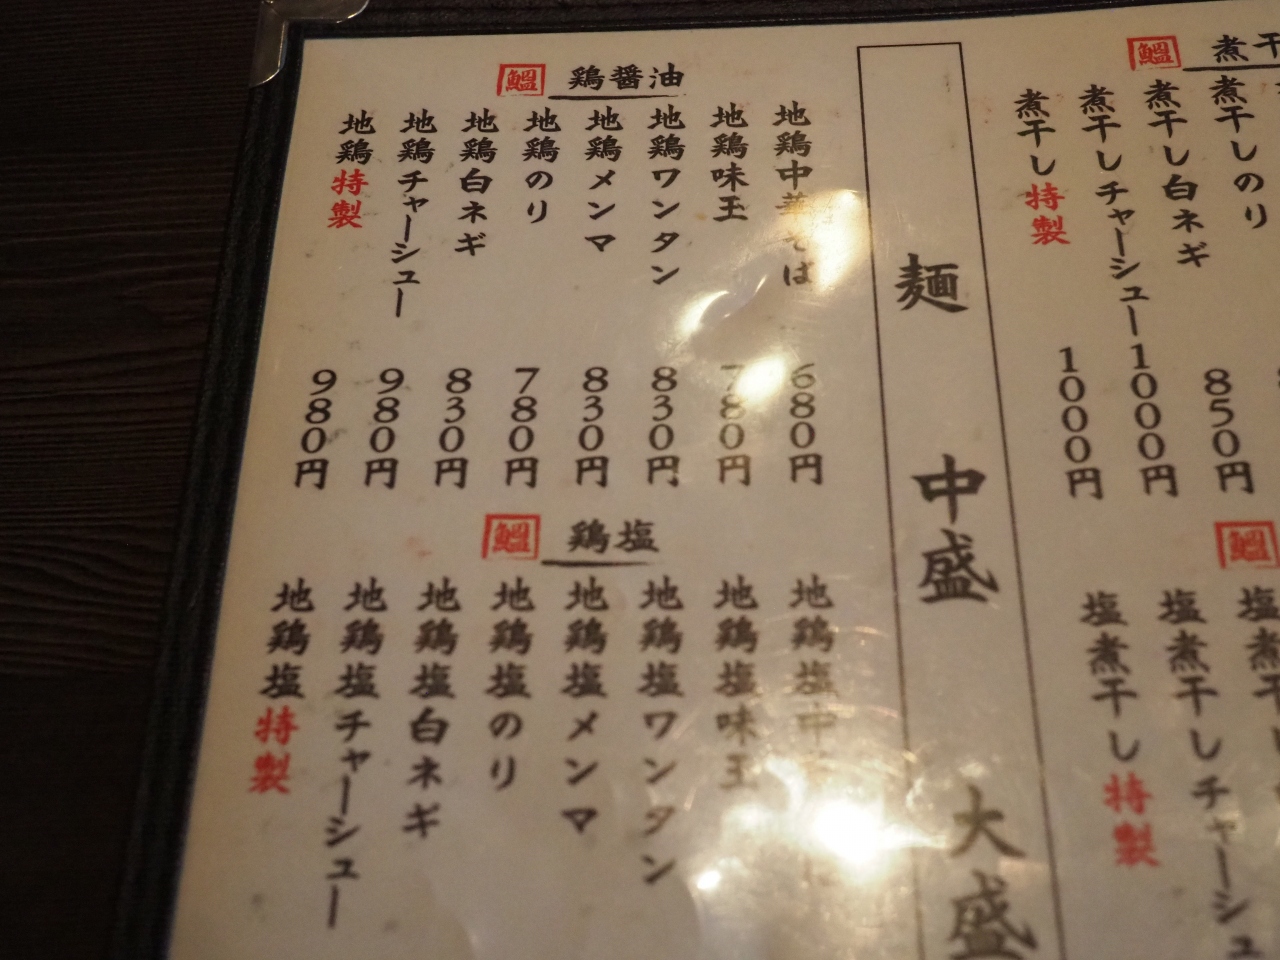 鰮 煮干
煮干しのり
煮干し白ネギ
850円
煮干しチャーシュー
1000円
煮干し特製
1000円
鰮
塩煮干しチャーシュー
塩煮干し特製
麺 中盛 大盛
鰮 鶏醤油
地鶏中華そば
680円
地鶏味玉
780円
地鶏ワンタン
830円
地鶏メンマ
830円
地鶏のり
780円
地鶏白ネギ
830円
地鶏チャーシュー
980円
地鶏特製
980円
鰮 鶏塩
地鶏塩中
地鶏塩味玉
地鶏塩ワンタン
地鶏塩メンマ
地鶏塩のり
地鶏塩白ネギ
地鶏塩チャーシュー
地鶏塩特製